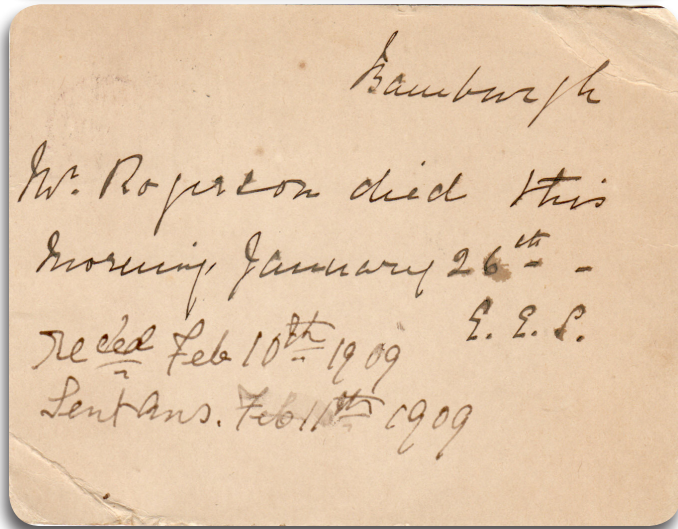 Bamburgh
Mr. Rogerson died this
morning, January 26th -
E. E. S.
recd'ed Feb 10th 1909
Sent Ans. Feb 11th 1909